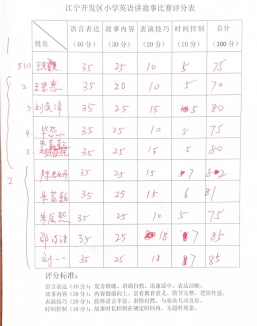 江宁开发区小学英语讲故事比赛评分表
姓名 语言表达（40分） 故事内容（30分） 表演技巧（20分） 时间控制（10分） 总分（100分）
35 25 10 5 75
2 35 25 10 5 70
3 35 25 15 5 80
4 35 25 10 5 75
5 35 25 15 5 80
35 25 15 7 82
35 25 15 6 81
35 25 10 5 75
35 25 18 7 85
刘一一 35 25 18 7 85
评分标准：
语言表达（40分）：发音准确，语调自然，语速适中，表达清晰。
故事内容（30分）：内容健康向上，富有教育意义，情节完整，逻辑性强。
表演技巧（20分）：肢体语言丰富，表情自然，与观众互动良好。
时间控制（10分）：故事时长控制在规定时间内，无超时现象。